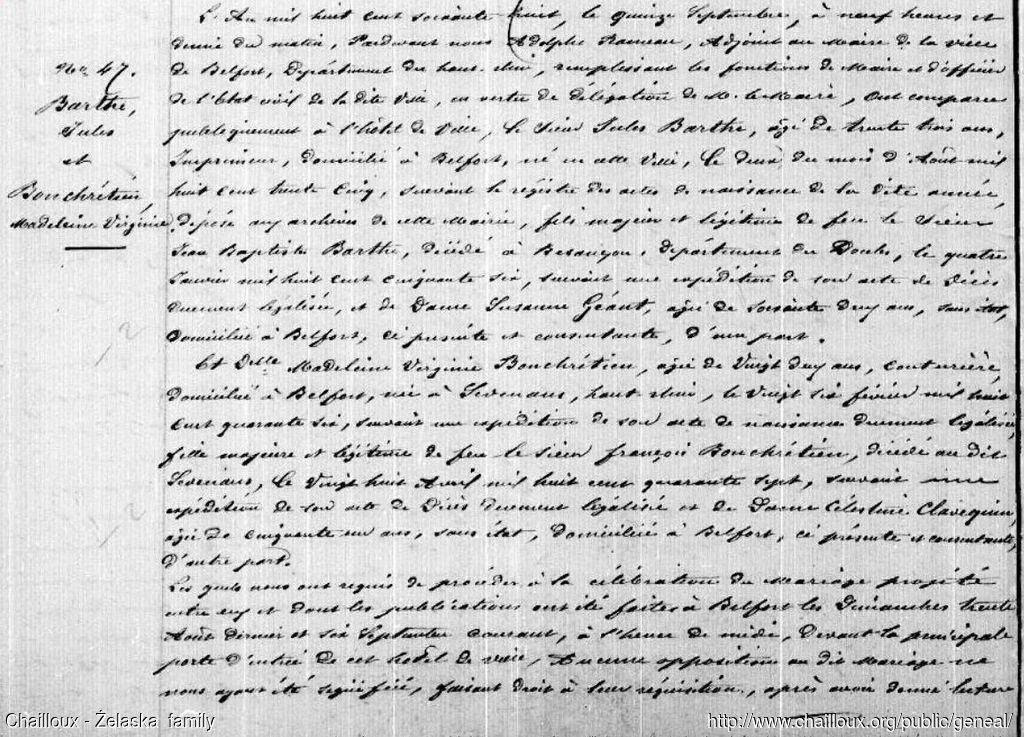 L'An mil huit cent soixante huit, le quinze Septembre, à neuf heures et
demie du matin, Pardevant nous Adolphe Rameau, Adjoint au Maire de la ville
de Belfort, Département du haut-Rhin, remplissant les fonctions de Maire et d'officier
de l'Etat civil de la dite Ville, en vertu de délégation de M. le Maire, Ont comparu
publiquement à l'hôtel de Ville, le Sieur Jules Barthe, âgé de trente trois ans,
Imprimeur, domicilié à Belfort, né en cette Ville, le deux du mois d'Août mil
huit cent trente cinq, suivant le registre des actes de naissance de la dite année,
déposé aux archives de cette Mairie, fils majeur et légitime de feu le Sieur
Jean Baptiste Barthe, décédé à Besançon, département du Doubs, le quatre
Janvier mil huit cent cinquante six, suivant une expédition de son acte de Décès
duement légalisée, et de Dame Susanne Géant, âgée de soixante deux ans, sans état,
domiciliée à Belfort, ci présente et consentante, d'une part.
Et Delle Madeleine Virginie Bonchrétien, âgée de Vingt deux ans, Couturière,
domiciliée à Belfort, née à Sévenans, haut-Rhin, le Vingt six février mil huit
cent quarante six, suivant une expédition de son acte de naissance duement légalisée,
fille majeure et légitime de feu le sieur françois Bonchrétien, décédé au dit
Sévenans, le Vingt huit Avril mil huit cent quarante sept, suivant une
expédition de son acte de Décès duement légalisée et de Dame Célestine Clavequin,
âgée de cinquante un ans, sans état, domiciliée à Belfort, ci présente et consentante,
d'autre part.
Les quels nous ont requis de procéder à la célébration du Mariage projeté
entre eux et dont les publications ont été faites à Belfort les Dimanches trente
Août dernier et six Septembre courant, à l'heure de midi, Devant la principale
porte d'entrée de cet hôtel de ville, Aucune opposition au dit Mariage ne
nous ayant été signifiée, faisant droit à leur réquisition, après avoir donné lecture
No 47.
Barthe,
Jules
et
Bonchrétien,
Madeleine Virginie
Chailloux - Żelaska family
http://www.chailloux.org/public/geneal/